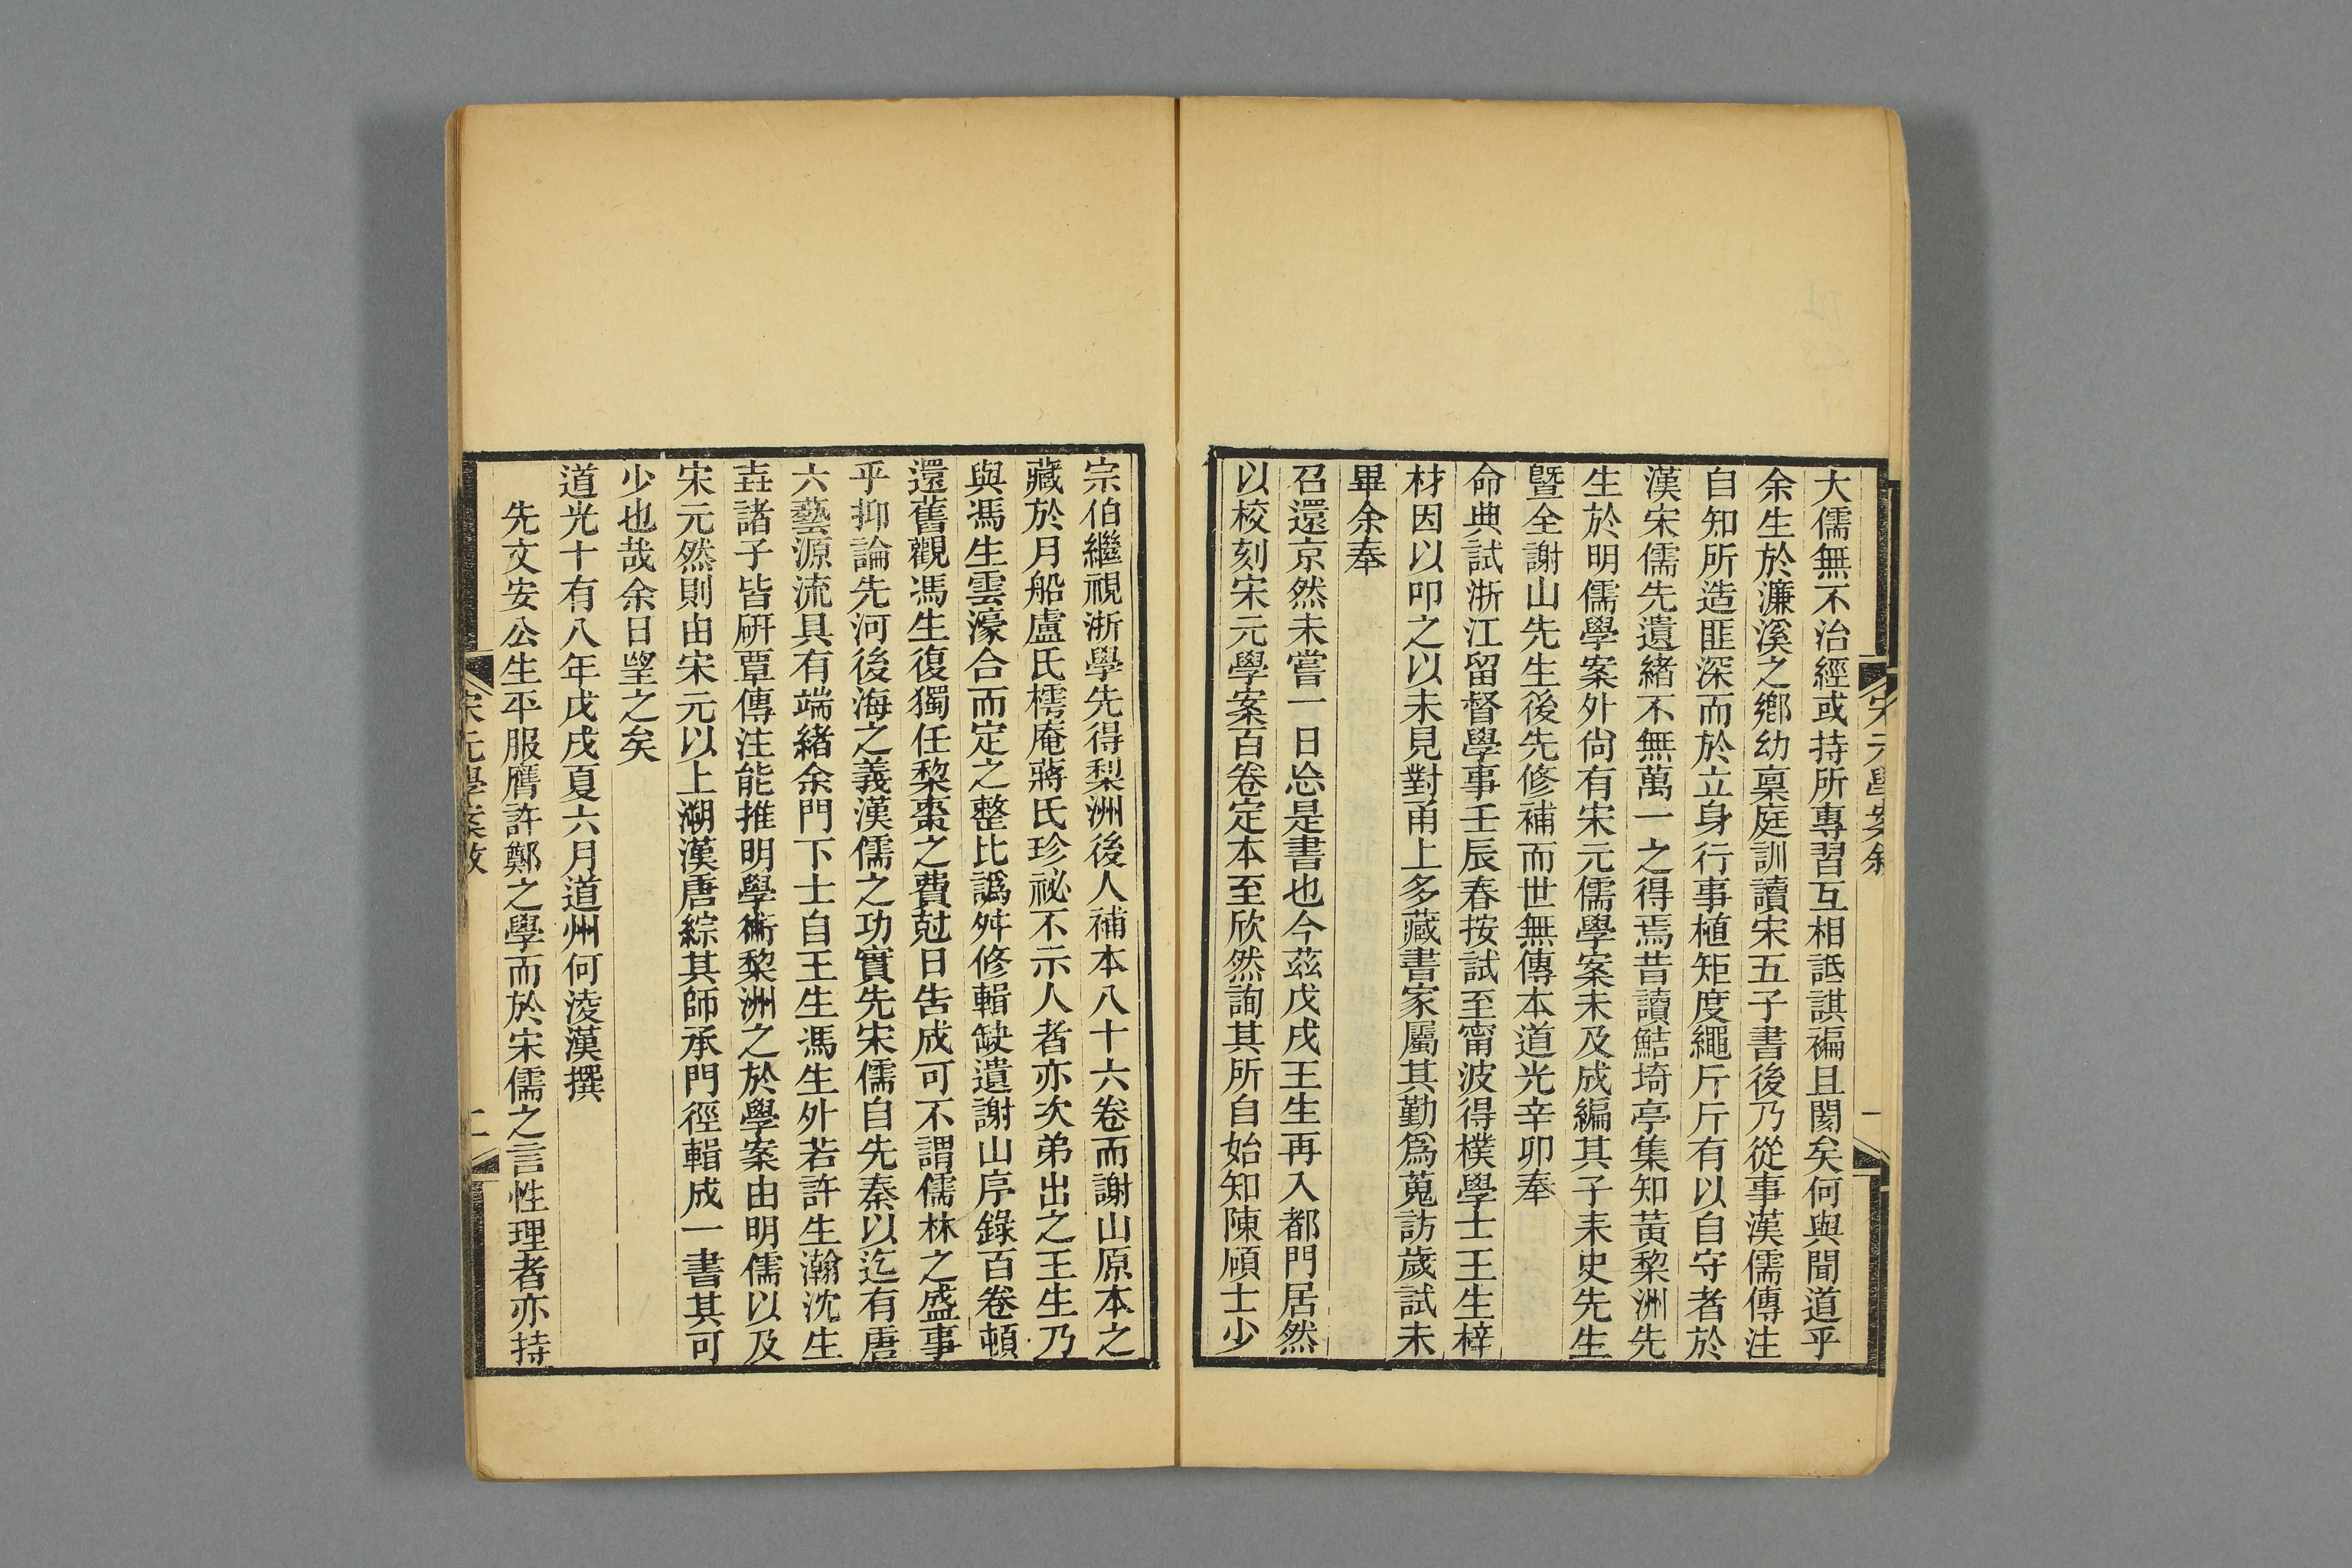 大儒無不治經或持所專習互相詆諆褊且閡矣何與聞道乎
余生於濂溪之鄉幼稟庭訓讀宋五子書後乃從事漢儒傳注
自知所造匪深而於立身行事植矩度繩斤斤有以自守者於
漢宋儒先遺緒不無萬一之得焉昔讀鮚埼亭集知黃棃洲先
生於明儒學案外尙有宋元儒學案未及成編其子耒史先生
暨全謝山先生後先修補而世無傳本道光辛卯奉
命典試浙江留督學事壬辰春按試至甯波得樸學士王生梓
材因以叩之以未見對甬上多藏書家屬其勤爲蒐訪歲試未
畢余奉
召還京然未嘗一日忘是書也今茲戊戌王生再入都門居然
以校刻宋元學案百卷定本至欣然詢其所自始知陳頎士少
宗伯繼視浙學先得梨洲後人補本八十六卷而謝山原本之
藏於月船盧氏樗庵蔣氏珍祕不示人者亦次弟出之王生乃
與馮生雲濠合而定之整比譌舛修輯缺遺謝山序錄百卷頓
還舊觀馮生復獨任棃棗之費尅日告成可不謂儒林之盛事
乎抑論先河後海之義漢儒之功實先宋儒自先秦以迄有唐
六藝源流具有端緒余門下士自王生馮生外若許生瀚沈生
垚諸子皆硏覃傳注能推明學術棃洲之於學案由明儒以及
宋元然則由宋元以上溯漢唐綜其師承門徑輯成一書其可
少也哉余日望之矣
道光十有八年戊戌夏六月道州何淩漢撰
先文安公生平服膺許鄭之學而於宋儒之言性理者亦持
宋元學案敘
二